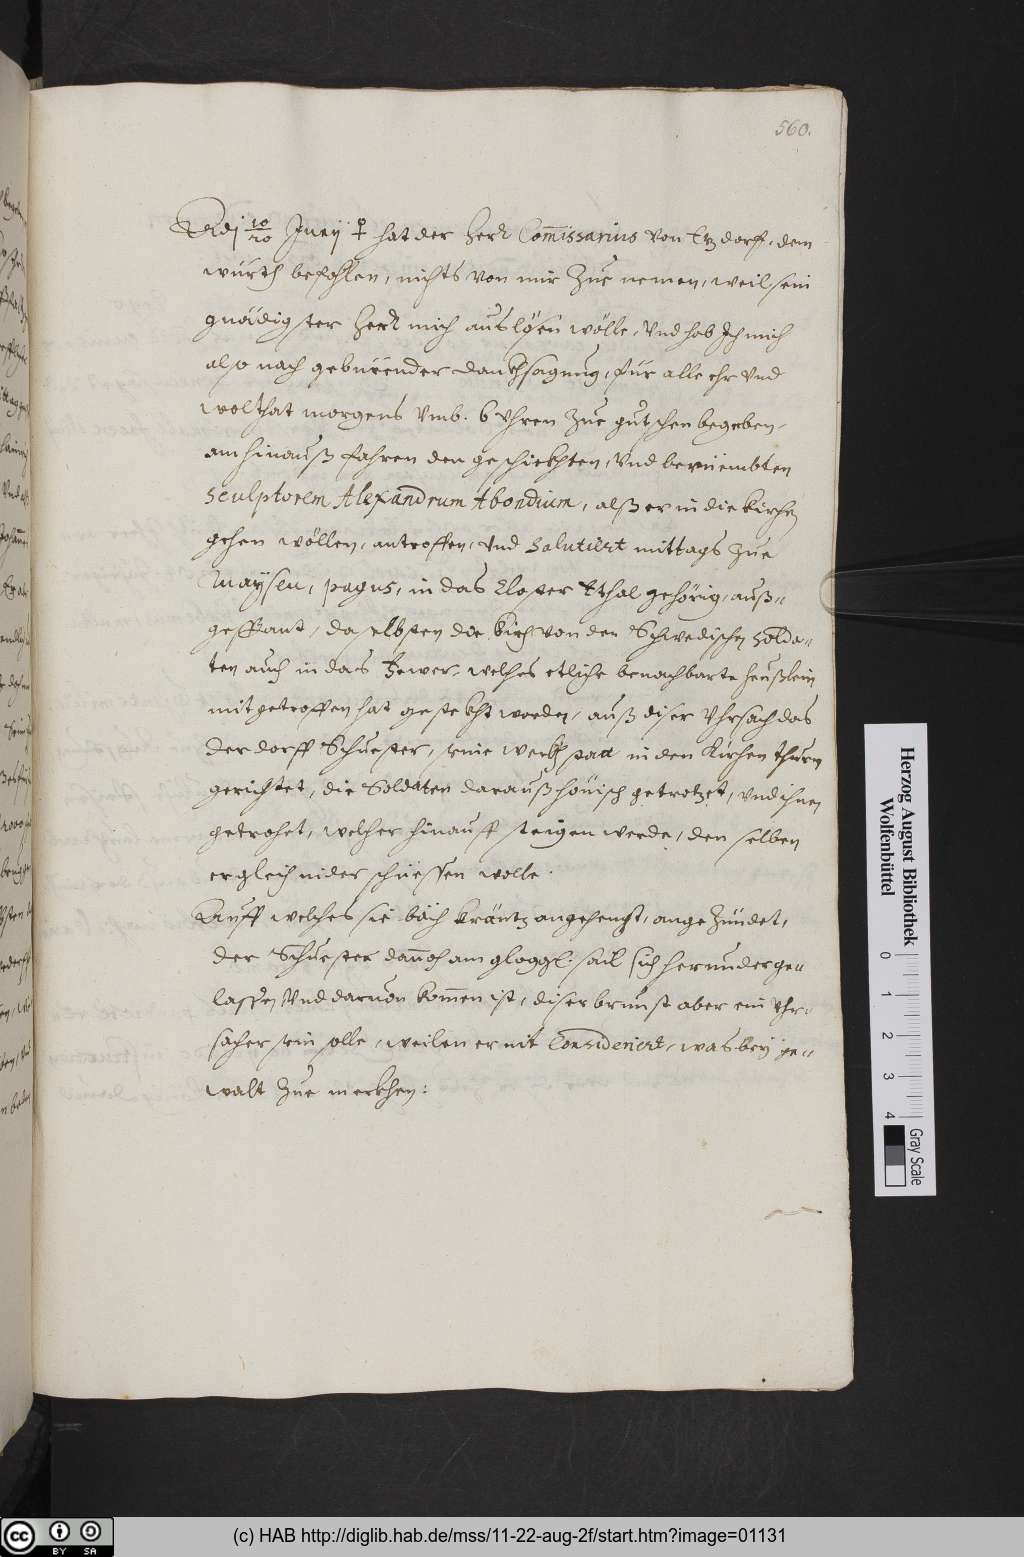 560.
Adj 10/20 Junij ♀ hat der Herr Com̃issarius von Etzdorff, dem
würth befohlen, nichts von mir Zue nemen, weil sein
gnädigster Herr mich auslösen wölle, Vnd hab Ich mich
also nach gebürender dankhsagung, für alle ehr Vnd
wolthat morgens Vmb. 6 Vhren Zue gutschen begeben,
am hinauß fahren den geschickhten, Vnd berüembten
Sculptorem Alexandrum Abondium, alß er in die kirchen
gehen wöllen, antroffen, Vnd Salutirt mittags Zue
Maysen, pagus, in das Closter Ethal gehörig, auß-
gespant, daselbsten die kirch von den Schwedischen Solda-
ten auch in das fewer, welches etliche benachbarte heußlein
mitgetroffen hat gestekht worden, auß diser Vhrsach das
der dorff Schuester, seine werkh statt in den Kirchen thurm
gerichtet, die Soldaten darauß höuisch getrotzet, Vnd ihnen
getrohet, welcher hinauff steigen werde, den selben
er gleich nider schiessen wolle.
Auff welches sie bäch kräntz angehengt, ange Zündet,
der Schuester dan̄och am gloggl. sail sich herunder ge-
lassen Vnd daruon kom̄en ist, diser brunst aber ein Vhr-
sacher sein solle, weilen er nit Considerirt, was bey ge-
walt Zue merkhen:
Herzog August Bibliothek
Wolfenbüttel
0 1 2 3 4
Gray Scale
cc BY SA
(c) HAB http://diglib.hab.de/mss/11-22-aug-2f/start.htm?image=01131